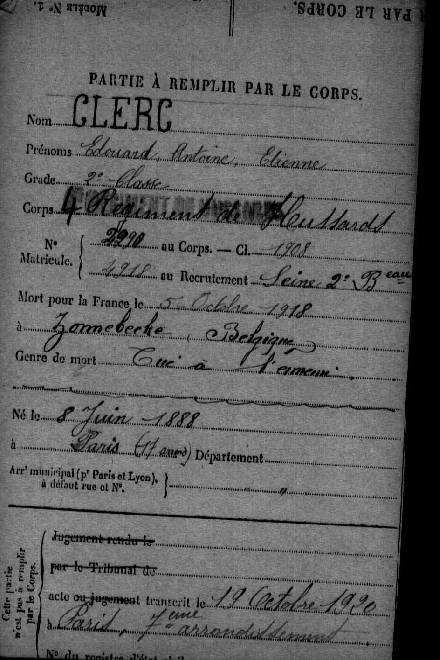 MODÈLE N° 1.
PAR LE CORPS.
PARTIE À REMPLIR PAR LE CORPS.
Nom CLERC
Prénoms Edouard, Antoine, Etienne
Grade 2e Classe
Corps 4 Régiment de Hussards
N° Matricule. { 2290 au Corps. — Cl. 1908
4918 au Recrutement Seine 2e Beau
Mort pour la France le 5 Octobre 1918
à Zonnebecke, Belgique
Genre de mort Tué à l'ennemi.
Né le 8 Juin 1888
à Paris (17 arrond) Département
Arrt municipal (pr Paris et Lyon), à défaut rue et N°. } "
Cette partie n'est pas à remplir par le Corps.
Jugement rendu le
par le Tribunal de
acte ou jugement transcrit le 19 Octobre 1920
à Paris, 7ème arrondissement
N° du registre d'état civil